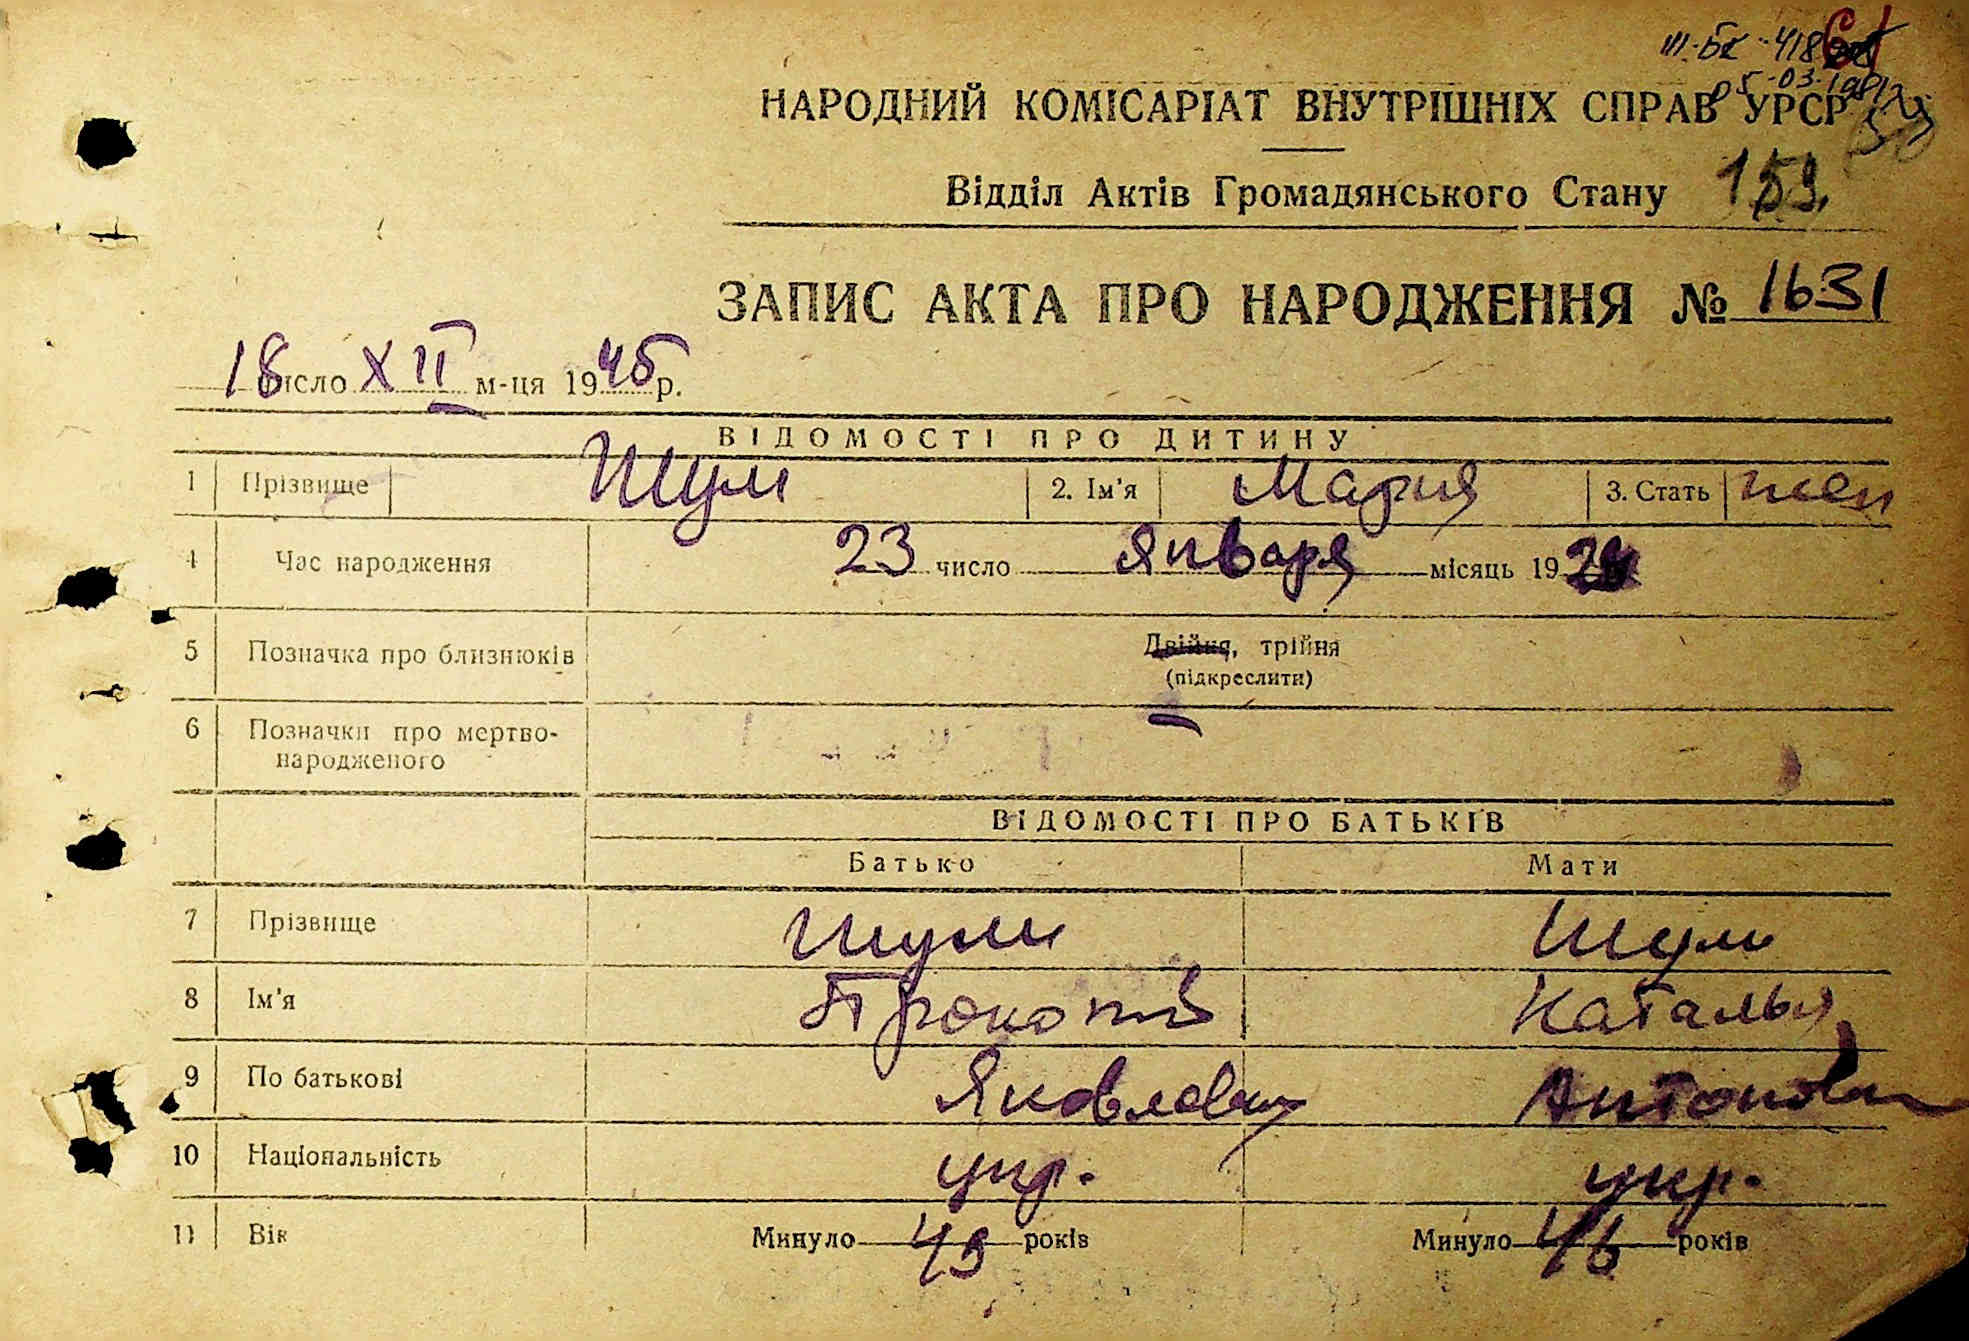 III-БК 418
05-03-1981
61
НАРОДНИЙ КОМІСАРІАТ ВНУТРІШНІХ СПРАВ УРСР
Відділ Актів Громадянського Стану 159.
ЗАПИС АКТА ПРО НАРОДЖЕННЯ № 1631
18 число XII м-ця 1945 р.
ВІДОМОСТІ ПРО ДИТИНУ
1 Прізвище Шум 2. Ім'я Мария 3. Стать жен
4 Час народження 23 число января місяць 19
5 Позначка про близнюків Двійня, трійня
(підкреслити)
6 Позначки про мертво-
народженого
ВІДОМОСТІ ПРО БАТЬКІВ
Батько Мати
7 Прізвище Шум Шум
8 Ім'я Прокопий Наталья
9 По батькові Яковлович Антоновна
10 Національність укр. укр.
11 Вік Минуло 49 років Минуло 46 років